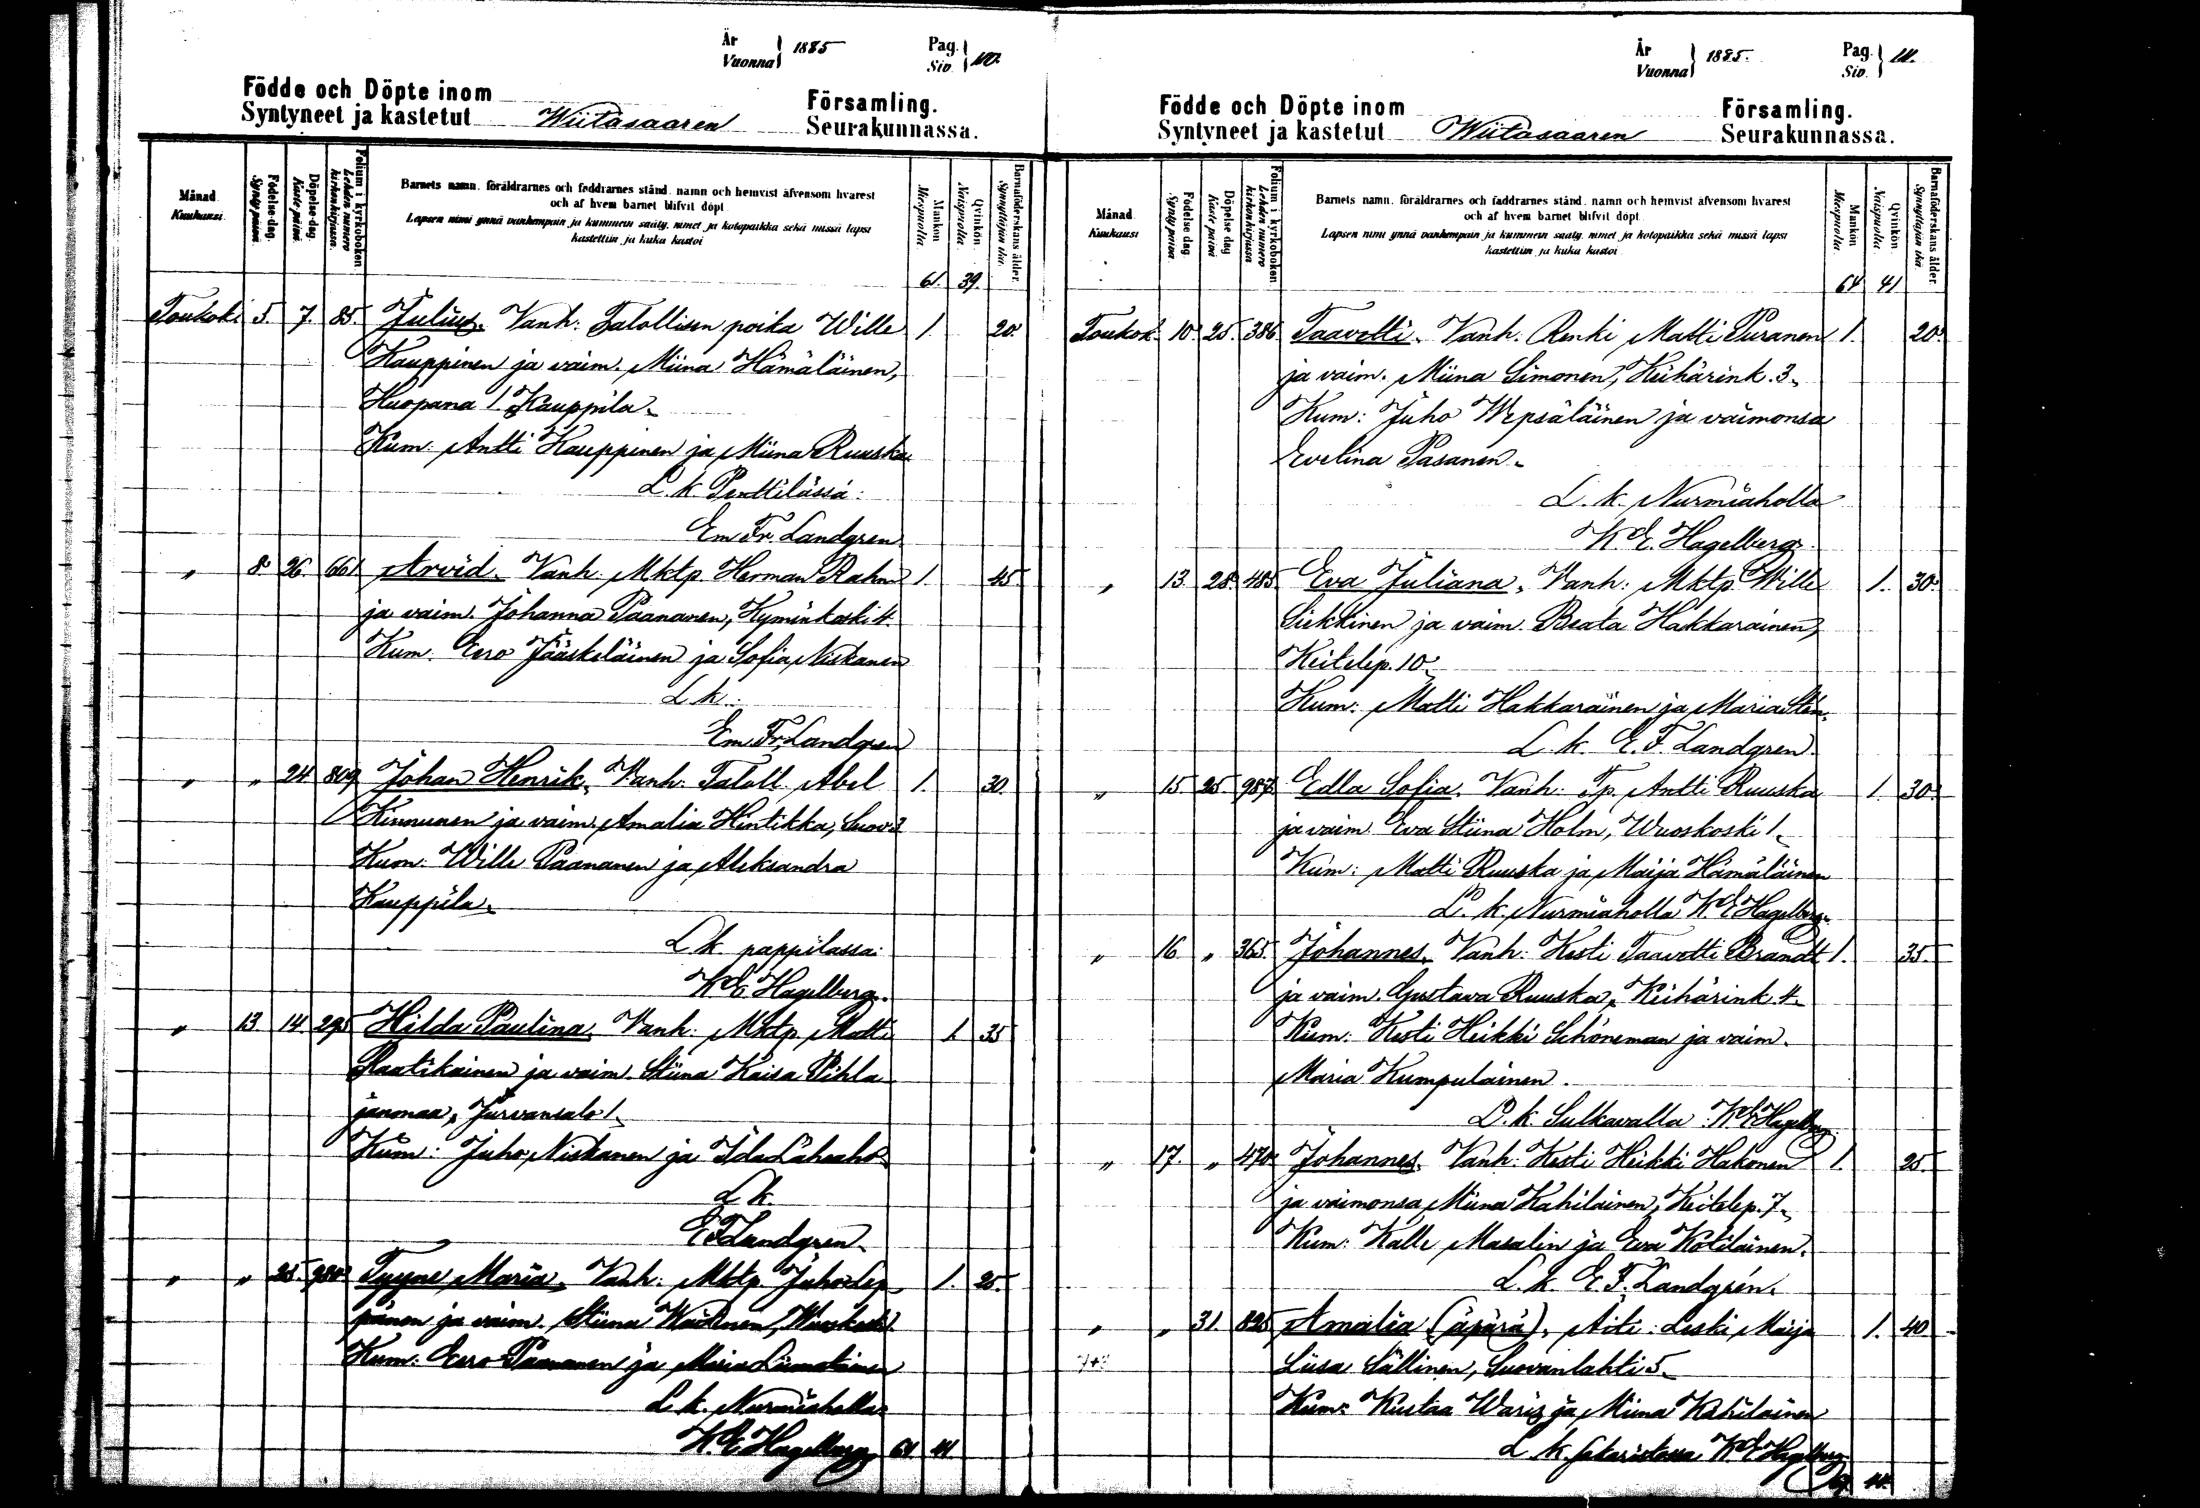 År
Vuonna } 1885
Pag.
Siv. } 110.
Födde och Döpte inom
Syntyneet ja kastetut Wiitasaaren
Församling.
Seurakunnassa.
Månad
Kuukausi
Födelse-dag.
Synty-päivä
Döpelse-dag.
Kaste-päivä
Folium i kyrkoboken
Lehden numero kirkonkirjassa.
Barnets namn. föräldrarnes och faddrarnes stånd. namn och hemvist äfvensom hvarest
och af hvem barnet blifvit döpt
Lapsen nimi ynnä vanhempain ja kummein sääty. nimet ja kotopaikka sekä missä lapsi
kastettiin ja kuka kastoi
Mankön
Miespuolta
Qvinkön
Naispuolta.
Barnaföderskans ålder.
Synnyttäjän ikä.
61. 39.
Toukok. 5. 7. 85. Julius. Vanh: Talollisen poika Wille 1. 20.
Kauppinen ja vaim. Miina Hämäläinen,
Huopana 1. Kauppila.
Kum: Antti Kauppinen ja Miina Ruuska
L. k. Penttilässä:
Em. Fr. Landgren.
" 8. 26. 661. Arvid. Vanh. Mktp. Herman Rahm 1. 45.
ja vaim. Johanna Paananen, Kyminkoski 4.
Kum. Eero Jääskeläinen ja Sofia Niskanen
L. k.
Em. Fr. Landgren
" " 24 809 Johan Henrik. Vanh. Taloll. Abel 1. 30.
Kinnunen ja vaim. Amalia Hintikka, Suov. 3
Kum. Wille Paananen ja Aleksandra
Kauppila.
L. k. pappilassa:
K E Hagelberg.
" 13 14 295 Hilda Paulina. Vanh: Mktp. Matti 1. 35
Raatikainen ja vaim. Stiina Kaisa Pihla
janmaa, Jurvansalo 1.
Kum: Juho Niskanen ja Ida Läheaho
L. k.
E F Landgren.
" " 25. 984 Tyyne Maria. Vanh: Mktp. Juho Lep- 1. 25.
pänen ja vaim. Stiina
Kum: Eero Paananen ja Maria Liimatainen
L. k. Nurmiaholla
K. E. Hagelberg 64 41
År
Vuonna } 1885.
Pag.
Siv. } 111.
Födde och Döpte inom
Syntyneet ja kastetut Wiitasaaren
Församling.
Seurakunnassa.
Månad
Kuukausi
Födelse dag.
Synty päivä.
Döpelse dag
Kaste päivä
Folium i kyrkoboken
Lehden numero kirkonkirjassa
Barnets namn. föräldrarnes och faddrarnes stånd. namn och hemvist äfvensom hvarest
och af hvem barnet blifvit döpt.
Lapsen nimi ynnä vanhempain ja kummein sääty. nimet ja kotopaikka sekä missä lapsi
kastettiin ja kuka kastoi
Mankön
Miespuolta.
Qvinkön
Naispuolta.
Barnaföderskans ålder.
Synnyttäjän ikä
64 41
Toukok. 10. 25. 386. Taavetti. Vanh: Renki Matti Puranen 1. 20.
ja vaim. Miina Simonen, Keihärink. 3.
Kum: Juho Wepsäläinen ja vaimonsa
Evelina Pasanen.
L. k. Nurmiaholla
K. E. Hagelberg.
" 13. 28. 485. Eva Juliana. Vanh: Mktp. Wille 1. 30.
Siekkinen ja vaim. Beata Hakkarainen,
Keitelep. 10.
Kum: Matti Hakkarainen ja Maria Sten.
L. k. E. F. Landgren.
" 15. 25. 987. Edla Sofia. Vanh: Tp. Antti Ruuska 1. 30.
ja vaim. Eva Stiina Holm, Wuoskoski 1.
Kum: Matti Ruuska ja Maija Hämäläinen
L. k. Nurmiaholla K E Hagelberg.
" 16. " 365. Johannes. Vanh: Kesti Taavetti Brandt 1. 35
ja vaim. Gustava Ruuska, Keihärink. 4.
Kum: Kesti Heikki Schöneman ja vaim.
Maria Kumpulainen.
L. k. Sulkavalla K E Hagelberg
" 17. " 470. Johannes. Vanh: Kesti Heikki Hakonen 1. 25.
ja vaimonsa Miina Kahilainen, Keitelep. 7.
Kum: Kalle Masalin ja Eva Kotilainen.
L. k. E. F. Landgrén.
" " 31. 825 Amalia (äpärä). Äiti: Leski Maija 1. 40
Liisa Sällinen, Suovanlahti 5.
Kum: Kustaa Waris ja Miina Kahilainen
L. k. Sakaristossa K E Hagelberg
44.